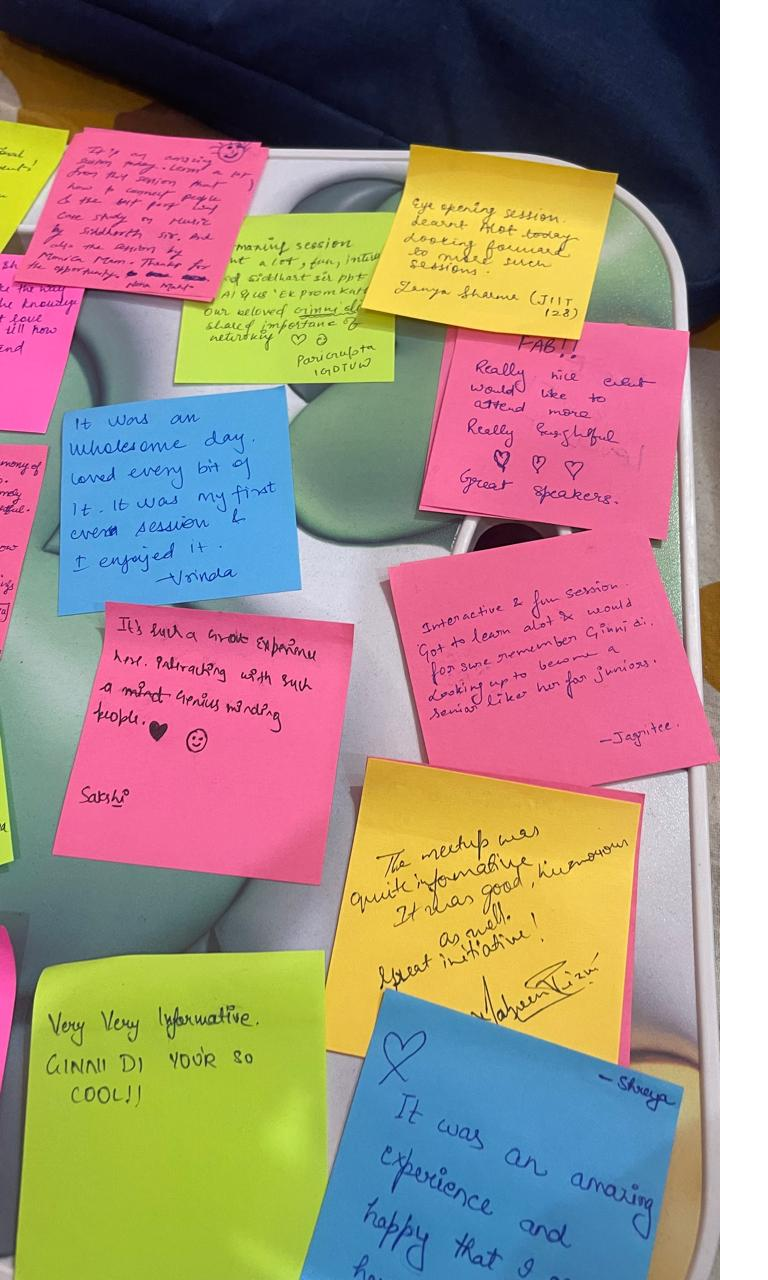 It's an amazing
session today. Learnt a lot
from this session that
how to connect people
& the best part was
case study on Music
by Siddharth sir. And
also the session by
Monica Mam. Thanks for
the opportunity.
session
alot, fun,
siddhart sir ppt
our beloved Ginni di
shared importance of
Pari Gupta
IGDTUW
Eye opening session.
learnt Alot today
Looking forward
to more such
sessions.
Zanya Sharma (JIIT
128)
he knowledge
till now
FAB!!
Really nice event
would like to
attend more
Really
Great speakers.
It was an
wholesome day.
loved every bit of
It. It was my first
session &
I enjoyed it.
-Vrinda
Interactive & fun session.
Got to learn alot & would
for sure remember Ginni di.
Looking up to become a
senior like her for juniors.
-Jagritee.
It's such a Great Experience
here. Interacting with such
a Genius minding
people.
Sakshi
The meetup was
quite informative
It was good, humorous
as well.
Great initiative!
Very Very Informative.
GINNII DI YOU'R SO
COOL!!
-Shreya
It was an amazing
experience and
happy that I